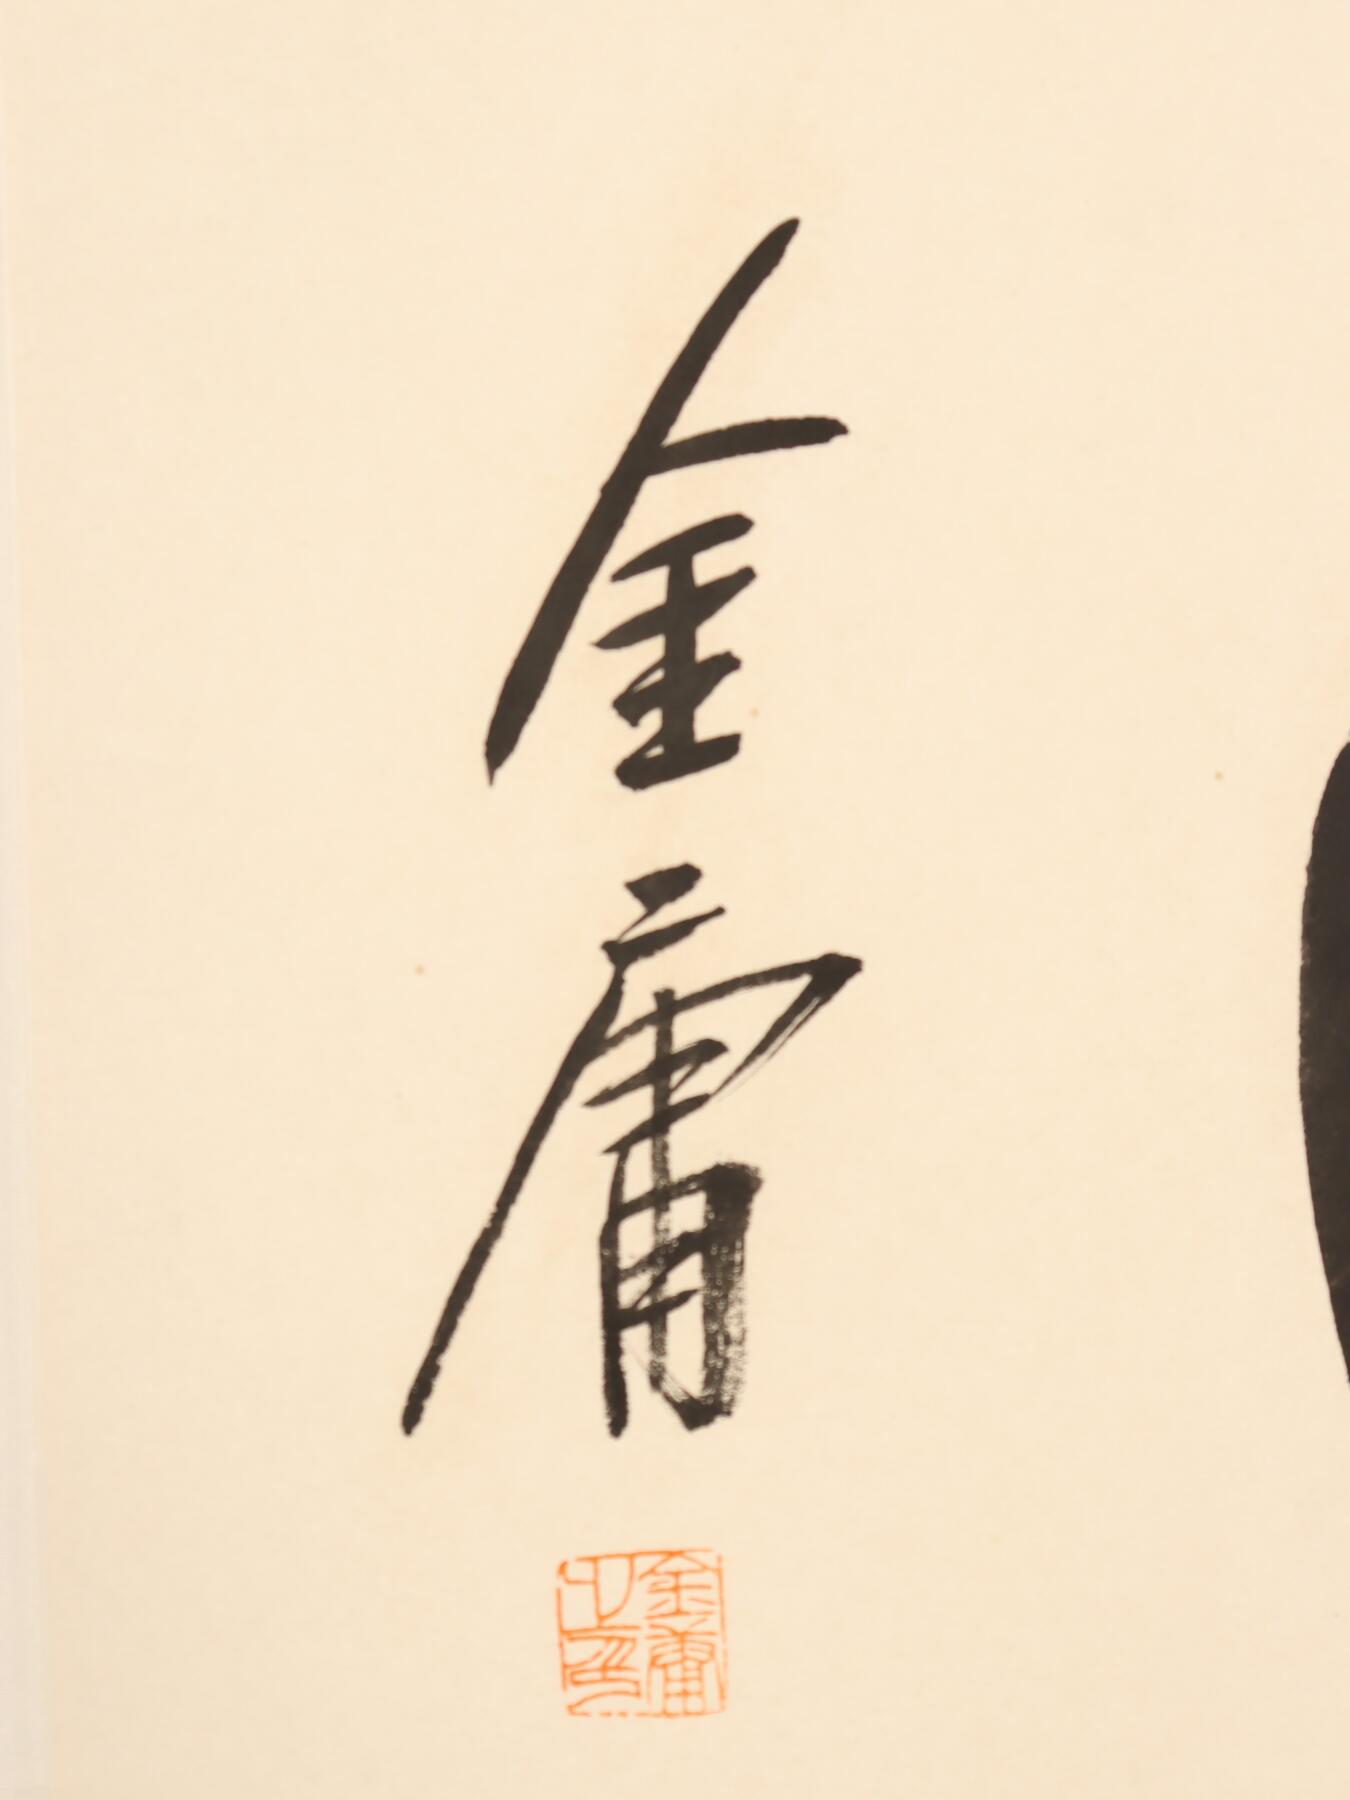 金庸
金庸之印